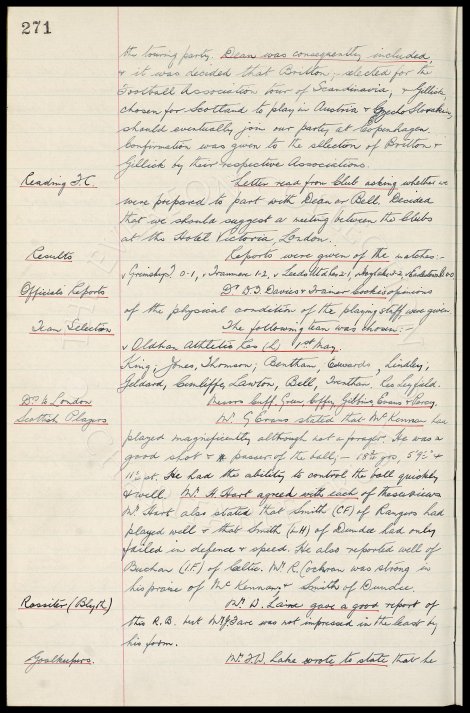 271
the touring party. Dean was consequently included,
& it was decided that Britton, selected for the
Football Association tour of Scandinavia, & Gillick
chosen for Scotland to play in Austria & Czecho Slovakia,
should eventually join our party at Copenhagen.
Confirmation was given to the selection of Britton &
Gillick by their respective Associations.
Reading F.C. Letter read from Club asking whether we
were prepared to part with Dean or Bell. Decided
that we should suggest a meeting between the Clubs
at the Hotel Victoria, London.
Results Reports were given of the matches:-
v Grimsby T 0-1, v Tranmere 1-2, v Leeds Utd
Officials Reports Dr. D.J. Davies & Trainer Cooke's opinions
of the physical condition of the playing staff was given.
Team Selection The following team was chosen:-
v Oldham Athletic Res (L) 1st May.
King; Jones, Thomson; Bentham, Edwards, Lindley,
Geldard, Cunliffe, Lawton, Bell, Trentham. Res Leyfield.
Dr. to London Messrs Cuff, Green, Coffey, Gibbins, Evans &
Scottish Players Mr. G Evans stated that McKennan had
played magnificently although not a forager. He was a
good shot & passer of the ball; - 18½ yrs, 5'9½" &
11½ st. He had the ability to control the ball quickly
& well. Mr. H. Hart agreed with each of these views
Mr. Hart also stated that Smith (CF) of Rangers had
played well & that Smith (LH) of Dundee had only
failed in defence & speed. He also reported well of
Buchan (I.F.) of Celtic. Mr. R. Cochran was strong in
his praise of McKennan & Smith of Dundee.
Rossiter (Blyth) Mr. D. Laird gave a good report of
this R.B. but Mr J Fare was not impressed in the least by
his form.
Goalkeepers. Mr. F.W. Lake wrote to state that he